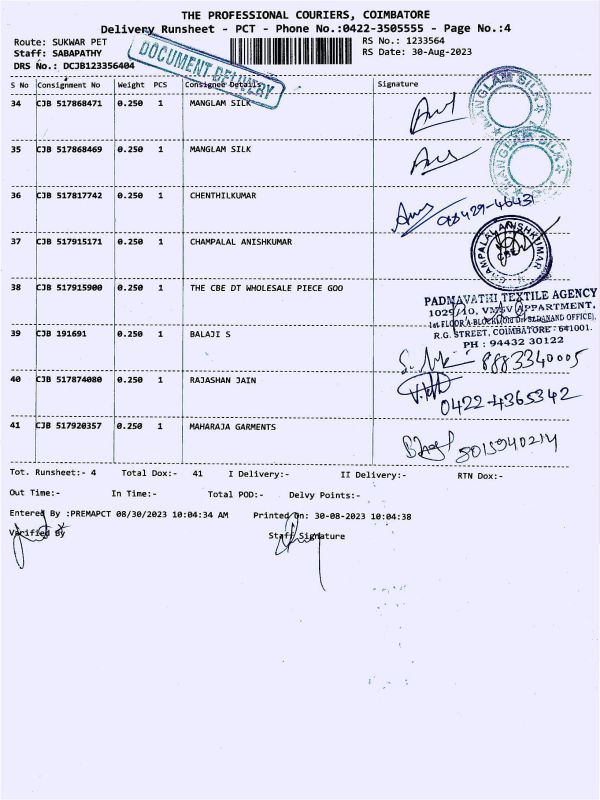 THE PROFESSIONAL COURIERS, COIMBATORE
Delivery Runsheet - PCT - Phone No.:0422-3505555 - Page No.:4
Route: SUKWAR PET
RS No.: 1233564
Staff: SABAPATHY
RS Date: 30-Aug-2023
DRS No.: DCJB123356404
DOCUMENT DELIVERY
S No Consignment No Weight PCS Consignee Details Signature
34 CJB 517868471 0.250 1 MANGLAM SILK
MANGLAM SILK
35 CJB 517868469 0.250 1 MANGLAM SILK
MANGLAM SILK
36 CJB 517817742 0.250 1 CHENTHILKUMAR
98429-46431
37 CJB 517915171 0.250 1 CHAMPALAL ANISHKUMAR
CHAMPALAL ANISHKUMAR
CBE
38 CJB 517915900 0.250 1 THE CBE DT WHOLESALE PIECE GOO
PADMAVATHI TEXTILE AGENCY
1025/10, VMSV APPARTMENT,
1st FLOOR A-BLOCK
R.G. STREET, COIMBATORE - 641001.
PH : 94432 30122
39 CJB 191691 0.250 1 BALAJI S
8883340005
40 CJB 517874080 0.250 1 RAJASHAN JAIN
0422-4365342
41 CJB 517920357 0.250 1 MAHARAJA GARMENTS
8015940214
Tot. Runsheet:- 4 Total Dox:- 41 I Delivery:- II Delivery:- RTN Dox:-
Out Time:- In Time:- Total POD:- Delvy Points:-
Entered By :PREMAPCT 08/30/2023 10:04:34 AM Printed On: 30-08-2023 10:04:38
Verified By Staff Signature